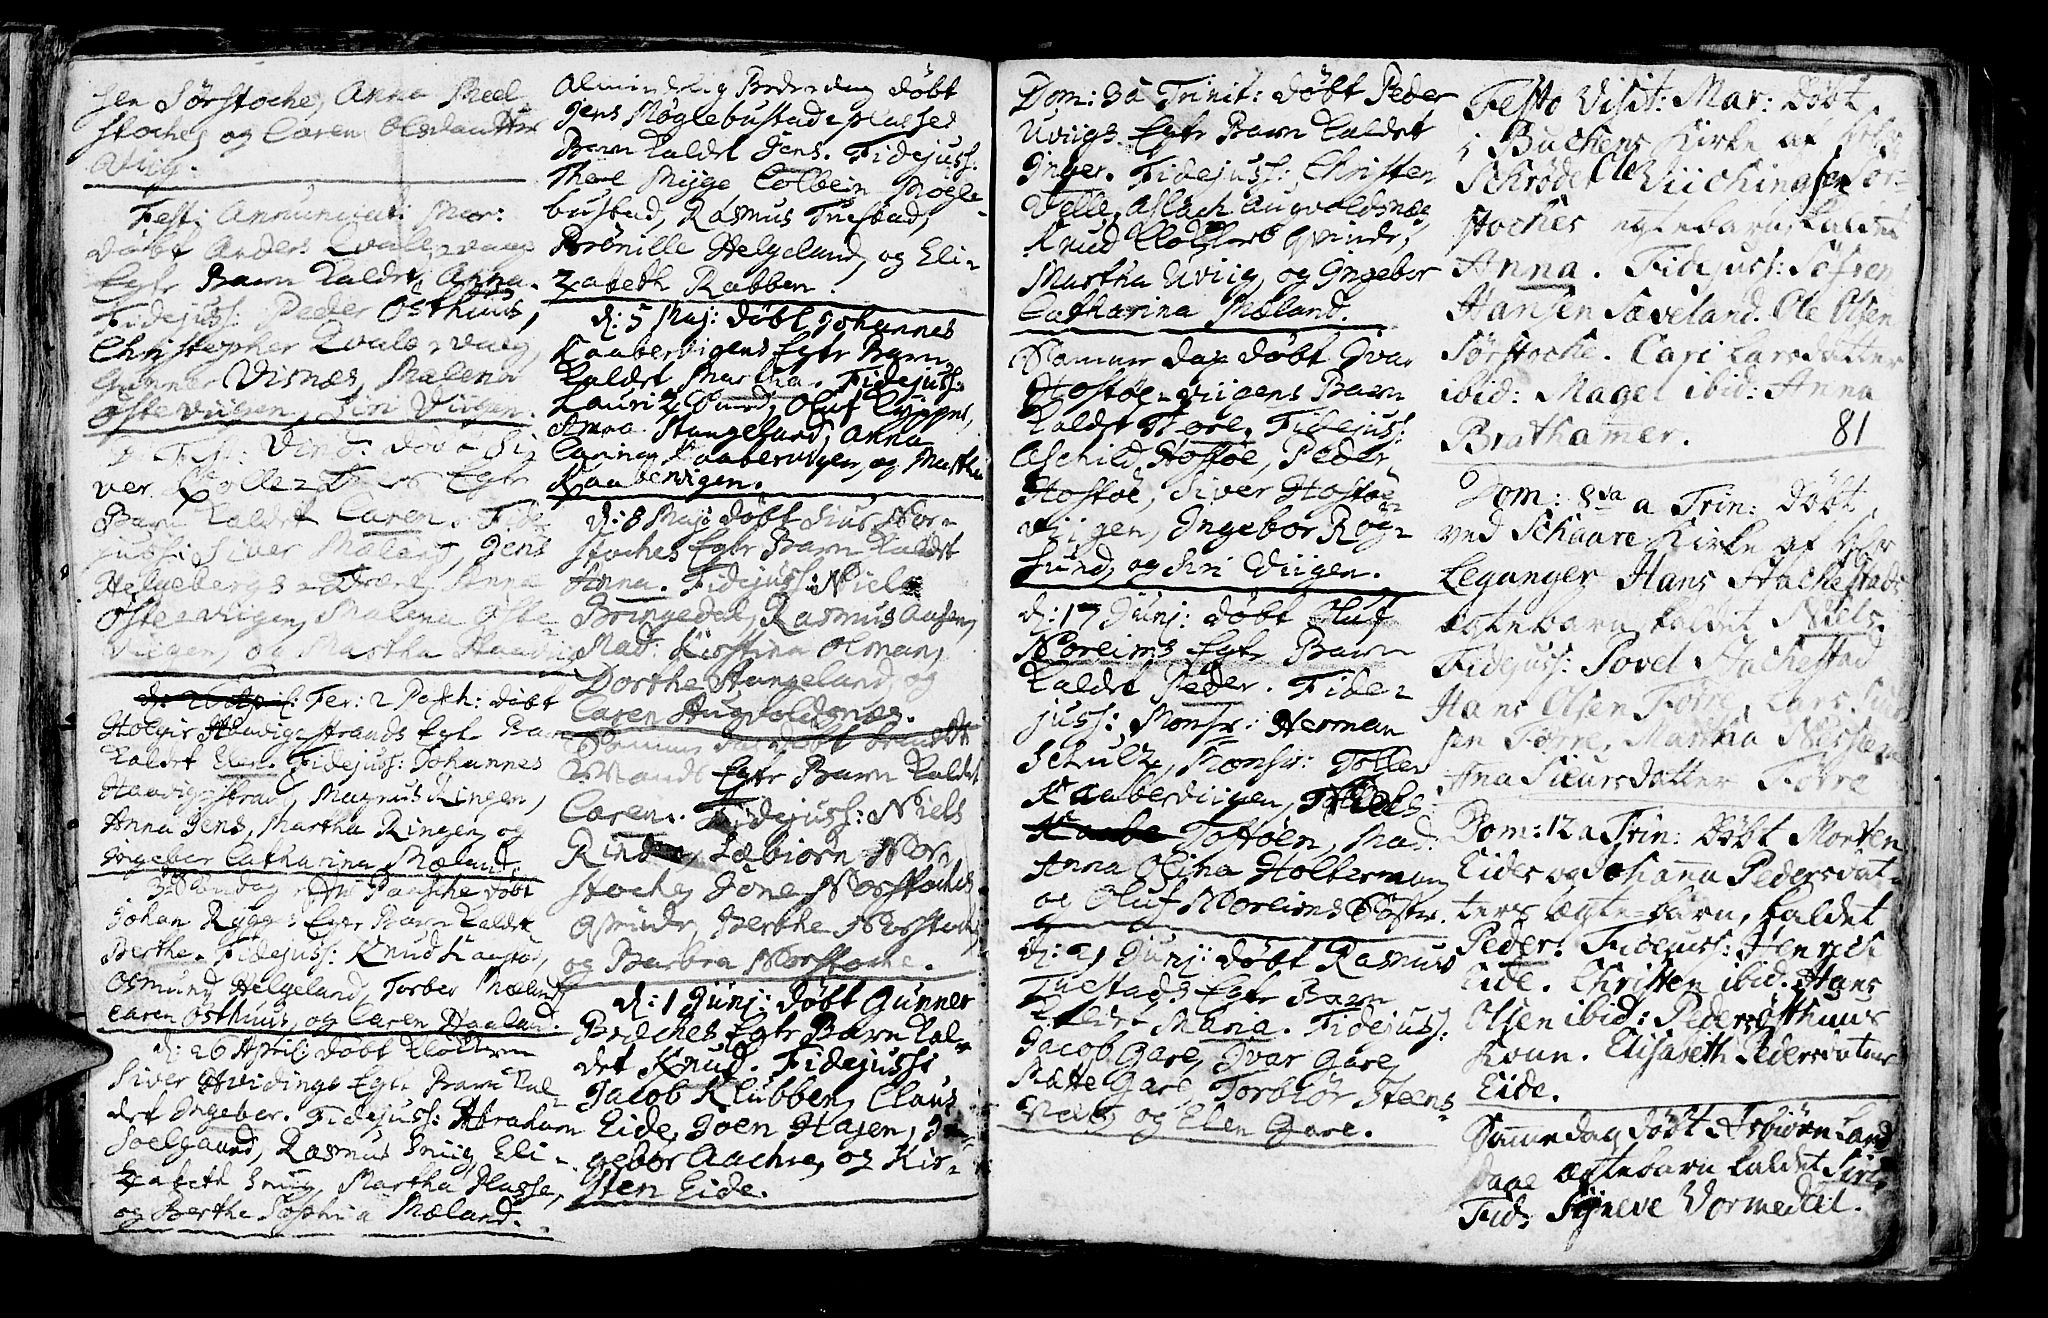 sen Sørstoche, Anna Meel
stoches og Caren Olsdaatter
Aviig.
Fest: Annunciati: Mar:
døbt Anders Qvale-vaag
Egte Barn Kaldet Anna.
Fidejuss: Peder Østhuus,
Christopher Qvale-vaag,
Gunner Visnæs, Malena
Østeviigen, Siri Viigen.
døbt Si-
ver Egte
Barn Kaldet Caren. Fide-
juss: Siver Mæland, Jens
Helgebergs Anna
Østeviigen, Malena Øste-
viigen, og Martha
Fer: 2 Pasch: døbt
Holgir Haavigstrands Egte Barn
Kaldet Elen. Fidejuss: Johannes
Haavigstrand, Magnus Ringen,
Anna Jens, Martha Ringen, og
Ingeber Catharina Mæland.
3die Søndag efter Paasche døbt
Johan Ryggs Egte Barn Kaldet
Berthe. Fidejuss: Knud
Osmund Helgeland, Torber Mæland,
Caren Østhuus, og Caren Haaland.
d: 26 April: døbt Klocheren
Siver Hvidings Egte Barn Kal-
det Ingeber. Fidejuss: Abraham
Soelgaard, Rasmus Sniig, Eli-
zabeth Sniig, Martha Plasse,
og Berthe Sophia Mæland.
Almindelig Bededag døbt
Jens Møglebustads plasses
Barn Kaldet Jens. Fidejuss:
Colbein Mogle-
bustad, Rasmus Tuestad,
Pernille Helgeland, og Eli-
zabeth Rabben.
d: 5 Maj: døbt Johannes
Kaabervigens Egte Barn
Kaldet Martha. Fidejuss:
Lauritz Sund, Oluf
Anna Stangeland, Anna
Kaabervigen, og Martha
Kaabervigen.
d: 8 Maj: døbt Siur Nor-
stoches Egte Barn Kaldet
Anna. Fidejuss: Niels
Bringedal, Rasmus Aasen,
Mad: Kirstina Olman,
Dorthe Stangeland, og
Caren Augvoldsnæs.
Samme dag døbt
Egte Barn Kaldet
Caren. Fidejuss: Niels
Sæbiørn Nor-
stoche, Jone Norstoches
Qvinde, Berthe Norstoche,
og Barbra Norstoche.
d: 1 Junj: døbt Gunner
Breches Egte Barn Kal-
det Knud. Fidejuss:
Jacob Klubben, Claus
Eide, Joen Hagen, In-
gebor Aachre, og Kir-
sten Eide.
Dom: 3 a Trinit: døbt Peder
Uviigs Egte Barn Kaldet
Inger. Fidejuss: Christen
Velle, Aslach Augvoldsnæs,
Knud Klochers Qvinde,
Martha Uviig, og Ingebor
Catharina Mæland.
Samme dag døbt Ivar
Hostøe-viigens Barn
Kaldet Tore. Fidejuss:
Aschild Hostøe, Peder
Hostøe, Siver Hostøe-
viigen, Ingebor Røg-
sund, og Siri Viigen.
d: 17 Junj: døbt Oluf
Noreims Egte Barn
Kaldet Peder. Fide-
juss: Monsr: Herman
Schultz, Monsr: Toller
Kaaberviigen, Niels
Tostøen, Mad:
Anna Olina Holterman,
og Oluf Noreims Søster.
d: 21 Junj: døbt Rasmus
Tuestads Egte Barn
Kaldet Maria. Fidejuss:
Jacob Gare, Ivar Gare,
Ratte Gare, Torbiør Steens-
næs, og Elen Gare.
Festo Visit: Mar: døbt
i Buchens Kirke af Hr:
Schrøder Ole Viichingsen Sør-
stoches egtebarn, kaldet
Anna. Fidejuss: Søfren
Hansen Sæveland. Ole Olsen
Sørstoche. Cari Larsdatter
ibid: Magel ibid: Anna
Brathamer.
81
Dom: 8va a Trin: døbt
ved Schaare Kirke af Hr
Leganger Hans Hachestads
ægtebarn, kaldet Niels.
Fidejuss: Povel Hachestad
Hans Olsen Førre, Lars Siur-
sen Førre, Martha Nilssen
Ana Siursdatter Førre
Dom: 12 a Trin: døbt Morten
Eides og Johanna Pedersdat-
ters ægte-barn, kaldet
Peder. Fidejuss: Henrich
Eide. Christen ibid. Hans
Olsen ibid: Peder Østhuus
Koun. Elisabeth Pedersdatter
Eide.
Same dag døbt Asbiørn Land-
aae ægtebarn kaldet Siri.
Fid: Synneve Vormedal.